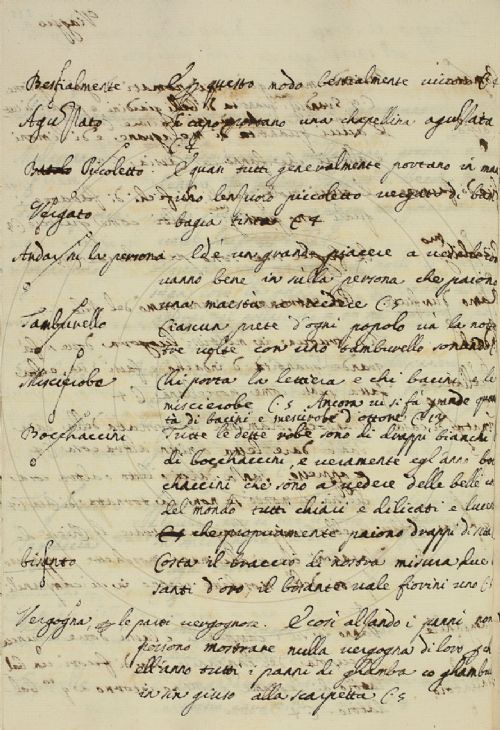 Viaggio
Bestialmente E in questo modo bestialmente vivono C 4
Aguzzato E cano portano una chapellina aguzzata
C 4
Picoletto E quasi tutti generalmente portano in ma
Vergato no uno lensuolo piccoletto vergato di bam
bagia tinta C 4
Andar in la persona Ed è un grande piacere a vederli co
vanno bene in sulla persona che paiono
una maestà a vedere C 5
Tamburello Ciascun prete d'ogni popolo va la notte
due volte con uno tamburello sonando
Miscierobe Chi porta la lettiera e chi bacini e le
miscierobe C 5 Ancora vi si fa grande quanti
tà di bacini e mescirobe d'ottone C 12
Bocchaccini Tutte le dette robe sono di drappi bianchi
di bocchaccini, e veramente egl'anno boc
chaccini che sono a vedere delle belle co
del mondo tutti chiari e dilicati e lucen
che propriamente paiono drappi di seta
bisanto Costa il braccio di nostra misura due
santi d'oro il bisante vale fiorini uno C
Vergogna, le parti vergognose. E così alzando i panni non
possono mostrare nulla vergogna di loro
ell'anno tutti i panni di ghamba co ghamba
in sin giuso alla scarpetta C 5